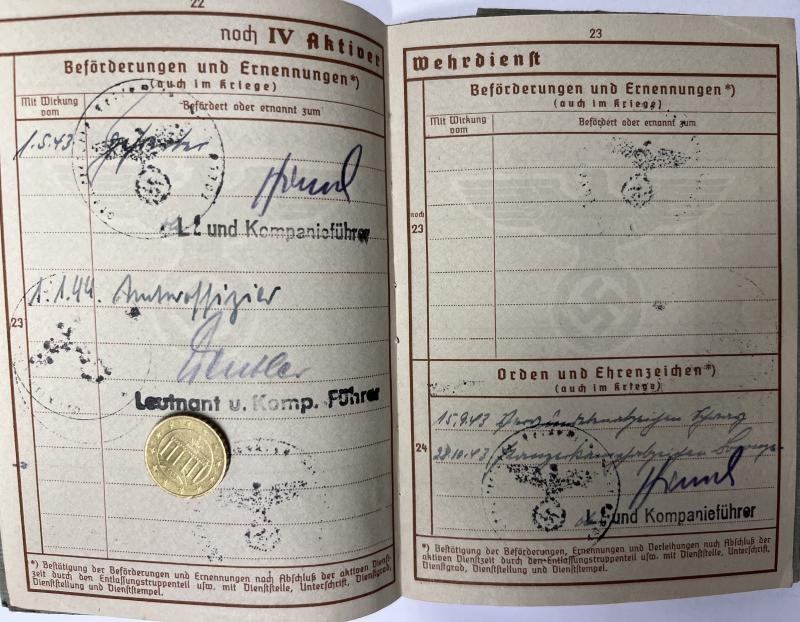 22
noch IV Aktiver
Beförderungen und Ernennungen*)
(auch im Kriege)
Mit Wirkung
vom
Befördert oder ernannt zum
1.5.43 Gefreiter
Lt. und Kompanieführer
1.1.44. Unteroffizier
23
Leutnant u. Komp. Führer
*) Bestätigung der Beförderungen und Ernennungen nach Abschluß der aktiven Dienst-
zeit durch den Entlassungstruppenteil usw. mit Dienststelle, Unterschrift, Dienstgrad,
Dienststellung und Dienststempel.
23
Wehrdienst
Beförderungen und Ernennungen*)
(auch im Kriege)
Mit Wirkung
vom
Befördert oder ernannt zum
noch
23
Orden und Ehrenzeichen*)
(auch im Kriege)
24
15.9.43 Verwundetenabzeichen schwarz
28.10.43 Panzerkampfabzeichen Bronze
Lt. und Kompanieführer
*) Bestätigung der Beförderungen, Ernennungen und Verleihungen nach Abschluß der
aktiven Dienstzeit durch den Entlassungstruppenteil usw. mit Dienststelle, Unterschrift,
Dienstgrad, Dienststellung und Dienststempel.